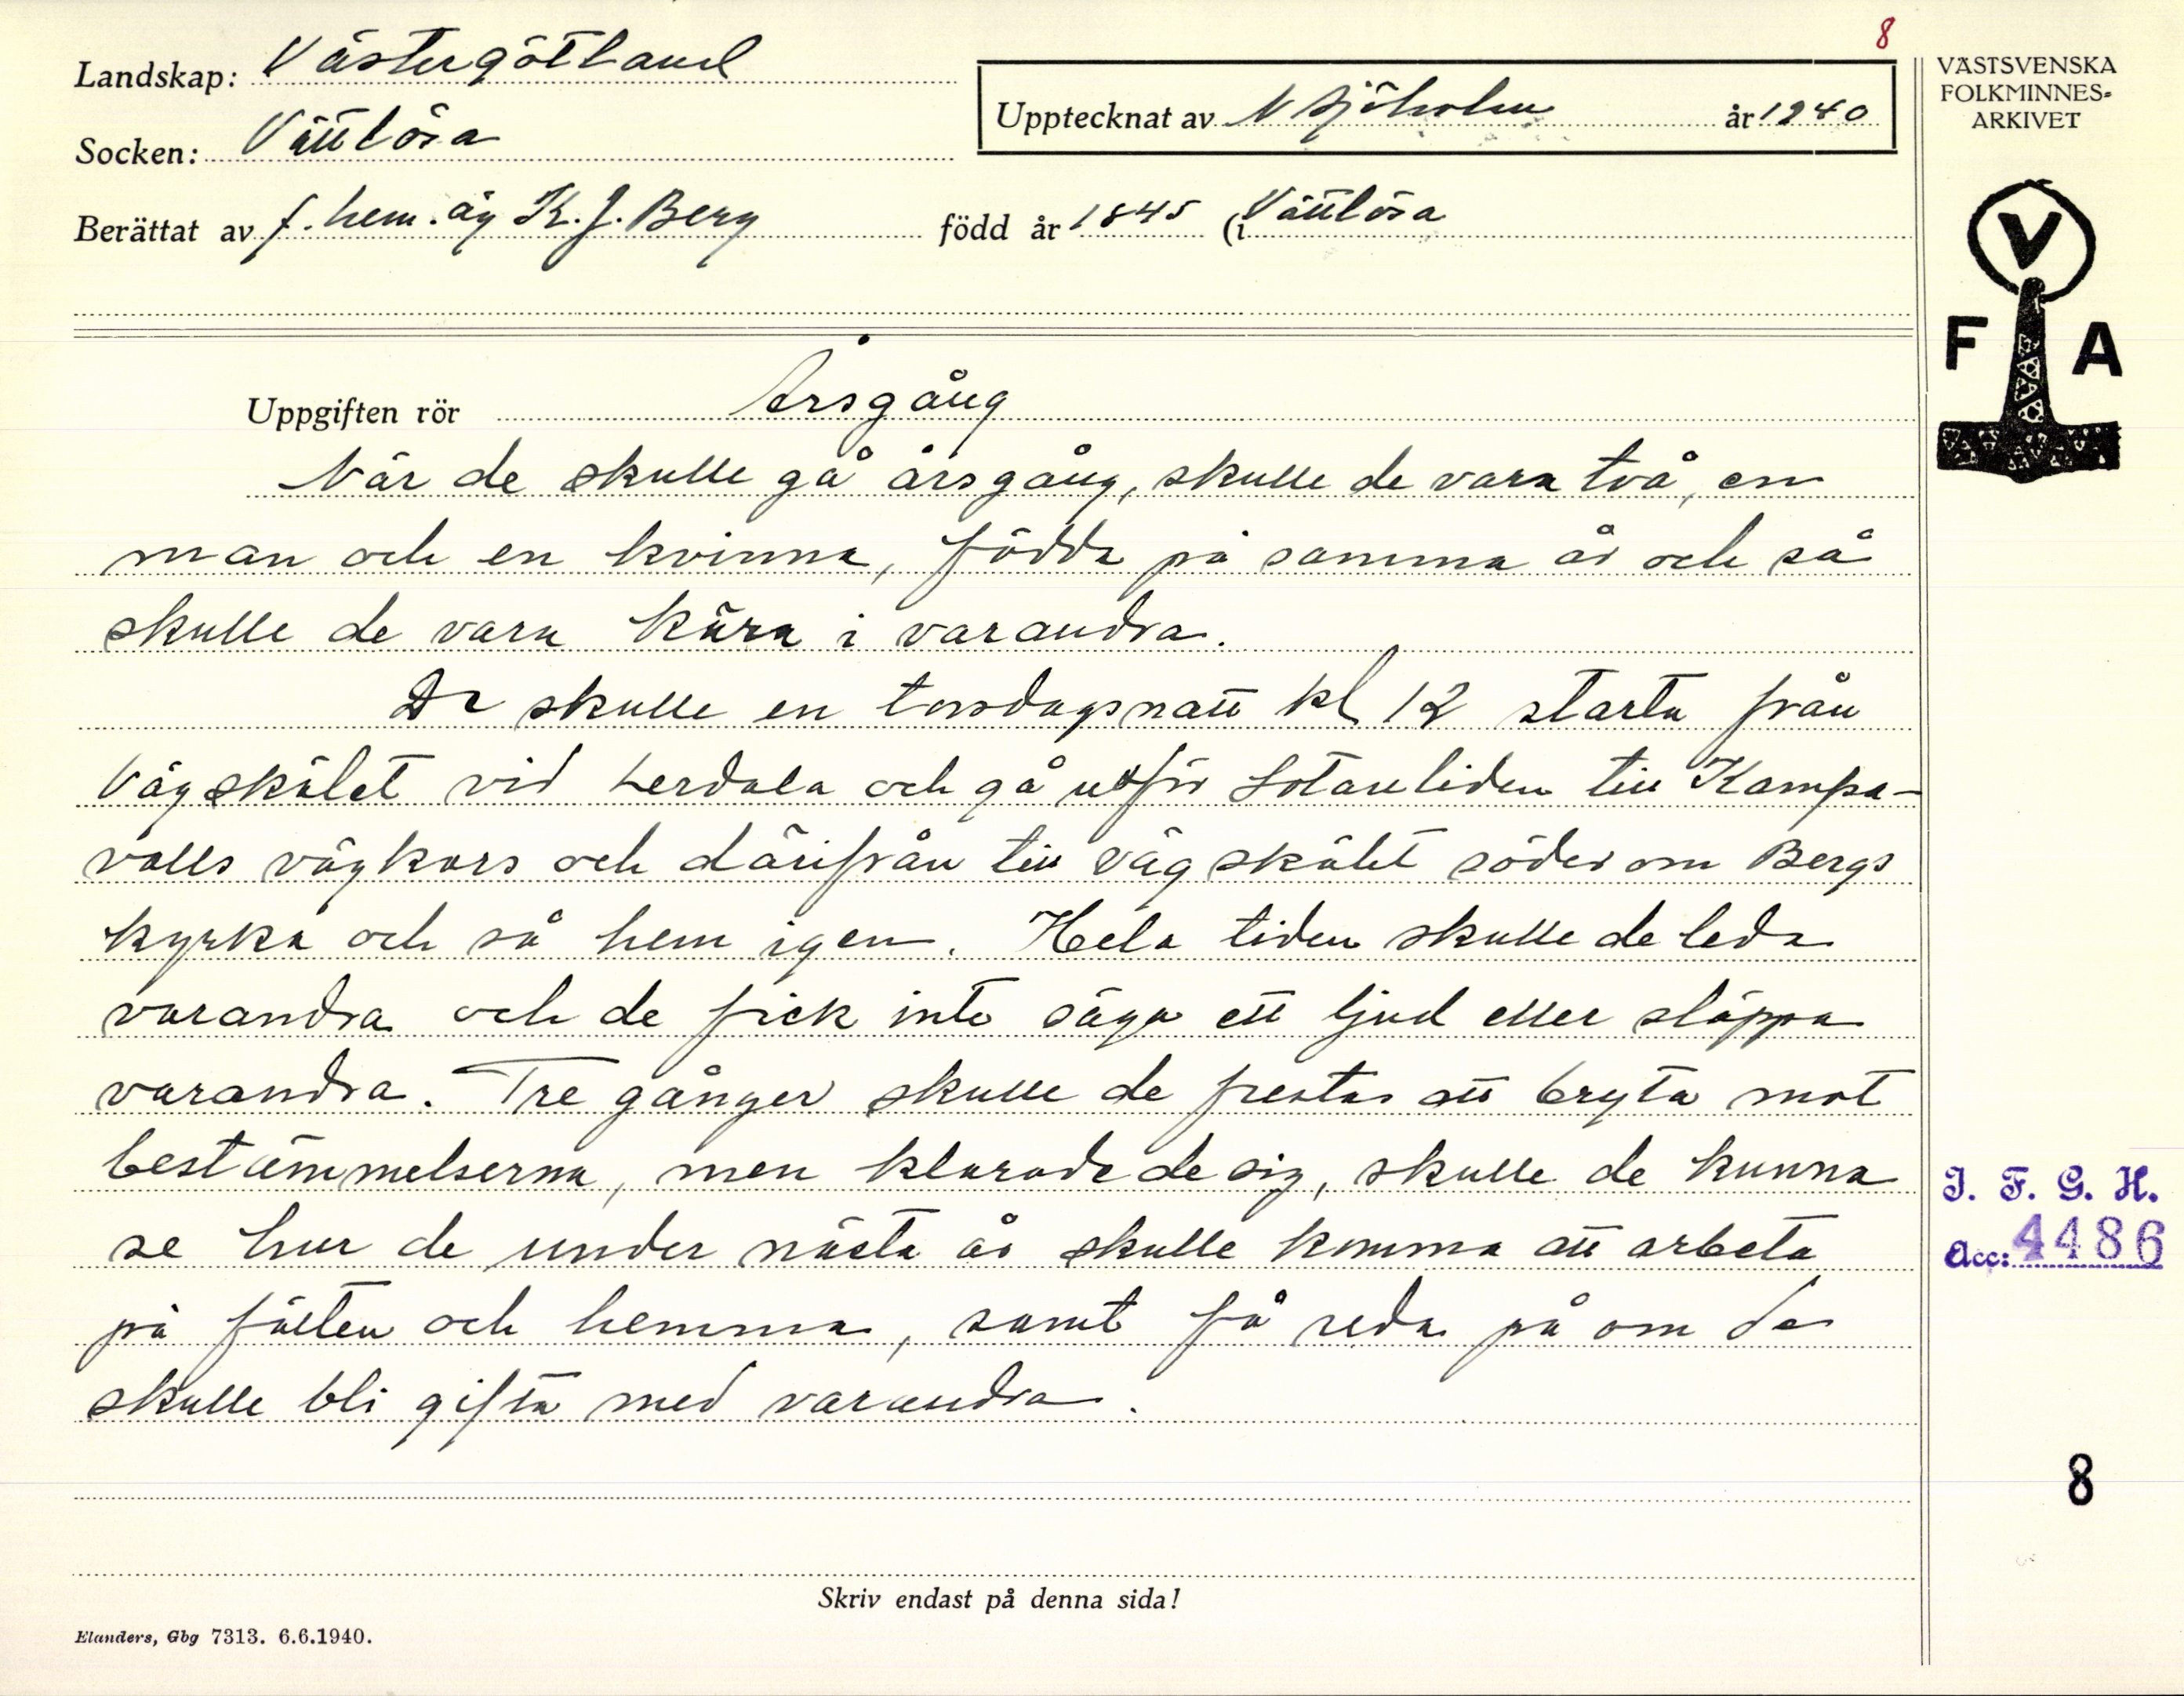 8
Landskap: Västergötland
Socken: Vättlösa
Upptecknat av N Sjöholm år 1940
Berättat av f. hem. äg K. J. Berg född år 1845 (i Vättlösa
VÄSTSVENSKA
FOLKMINNES-
ARKIVET
V
F A
Uppgiften rör Årsgång
När de skulle gå årsgång, skulle de vara två, en
man och en kvinna, födda på samma år och så
skulle de vara kära i varandra.
De skulle en torsdagsnatt kl 12 starta från
Vägskälet vid Lerdala och gå utför Lotanliden till Kampa-
valls vägkors och därifrån till vägskälet söder om Bergs
kyrka och så hem igen. Hela tiden skulle de leda
varandra och de fick inte säga ett ljud eller släppa
varandra. Tre gånger skulle de frestas att bryta mot
bestämmelserna, men klarade de sig, skulle de kunna
se hur de under nästa år skulle komma att arbeta
på fälten och hemma, samt få reda på om de
skulle bli gifta med varandra.
J. F. G. H.
Acc: 4486
8
Skriv endast på denna sida!
Elanders, Gbg 7313. 6.6.1940.